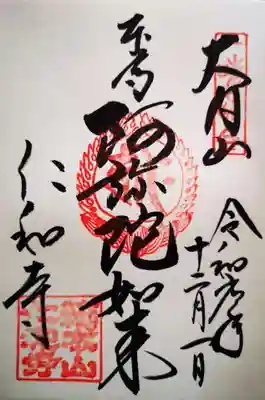 大内山
令和元年
十二月一日
本尊
阿弥陀如来
仁和寺